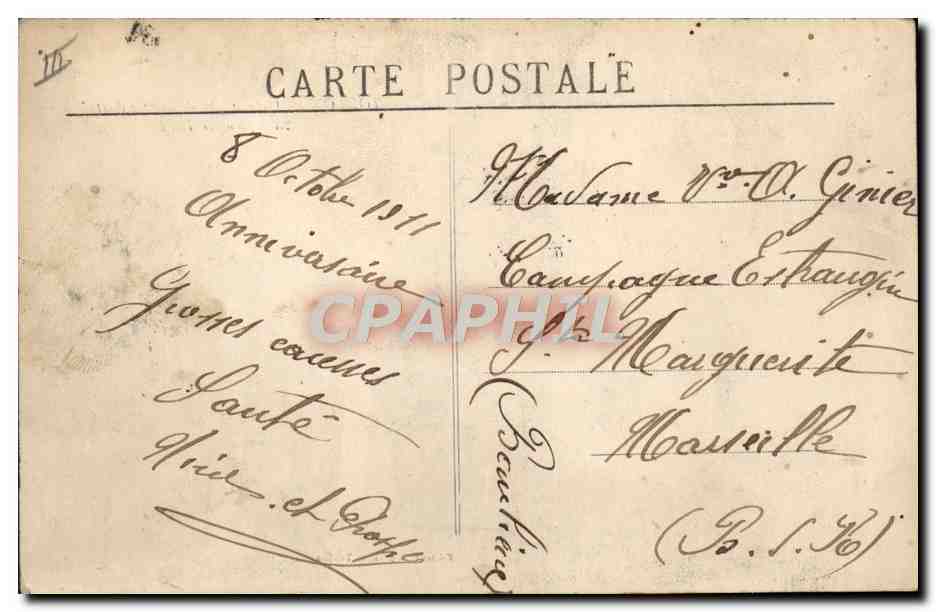 III
CARTE POSTALE
8 Octobre 1911
Anniversaire
Grosses caresses
Santé
et
Madame Vve A. Ginier
Campagne Estrangin
Ste Marguerite
Marseille
(B. d. R)
CPARHIL